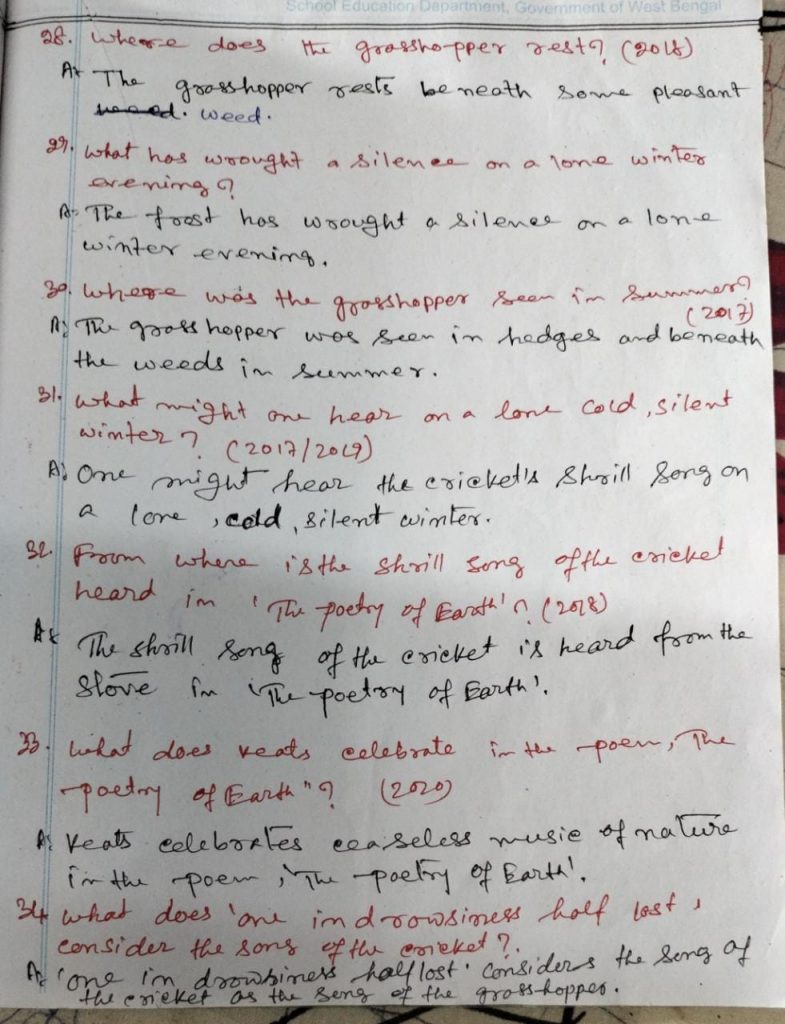 School Education Department, Government of West Bengal
28. Where does the grasshopper rest? (2018)
A: The grasshopper rests beneath some pleasant
weed. weed.
29. What has wrought a silence on a lone winter
evening?
A: The frost has wrought a silence on a lone
winter evening.
30. Where was the grasshopper seen in summer?
(2017)
A: The grasshopper was seen in hedges and beneath
the weeds in summer.
31. What might one hear on a lone cold, silent
winter? (2017/2019)
A: One might hear the cricket's shrill song on
a lone, cold, silent winter.
32. From where is the shrill song of the cricket
heard in 'The poetry of Earth'? (2018)
A: The shrill song of the cricket is heard from the
Stove in 'The poetry of Earth'.
33. What does Keats celebrate in the poem, The
poetry of Earth"? (2020)
A: Keats celebrates ceaseless music of nature
in the poem, 'The poetry of Earth'.
34. What does 'one in drowsiness half lost'
consider the song of the cricket?
A: 'one in drowsiness half lost' considers the song of
the cricket as the song of the grasshopper.